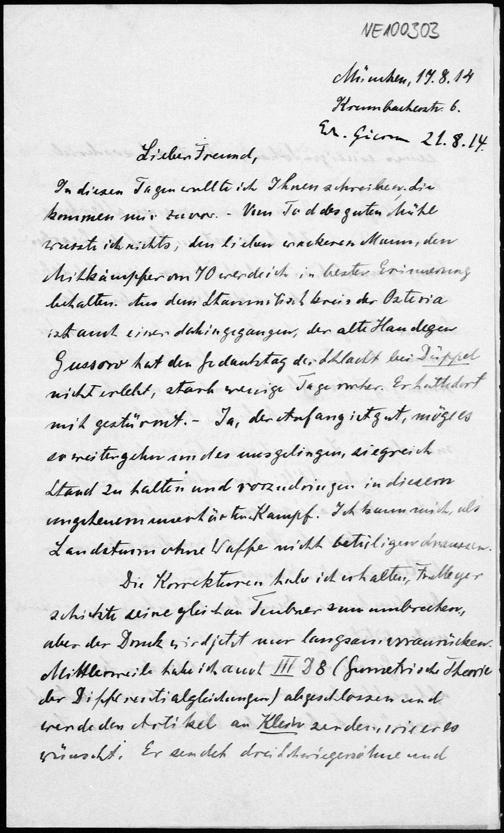 NE100303
München, 17.8.14
Krumbacherstr. 6.
21.8.14.
Lieber Freund,
In diesen Tagen wollte ich Ihnen schreiben, Sie
kommen mir zuvor. – Vom Tod des guten Mühl
wusste ich nichts, den lieben wackeren Mann, den
Mitkämpfer von 70 werde ich in bester Erinnerung
behalten. Aus dem Stammtischkreis der Osteria
ist auch einer dahingegangen, der alte Haudegen
Gussow hat den Gedenktag der Schlacht bei Düppel
nicht erlebt, starb wenige Tage vorher. Er hatte dort
mit gestürmt. – Ja, der Anfang ist gut, möge es
so weitergehn und es uns gelingen, siegreich
Stand zu halten und vorzudringen in diesem
ungeheuren unerhörten Kampf. Ich kann mich, als
Landsturm ohne Waffe nicht beteiligen draussen.
Die Korrekturen habe ich erhalten, Fr. Meyer
schickte seine gleich an Teubner zum umbrechen,
aber der Druck wird jetzt nur langsam voranrücken.
Mittlerweile habe ich auch III D 8 (Geometrische Theorie
der Differentialgleichungen) abgeschlossen und
werde den Artikel an Klein senden, wie er es
wünscht. Er sendet drei Schwiegersöhne und